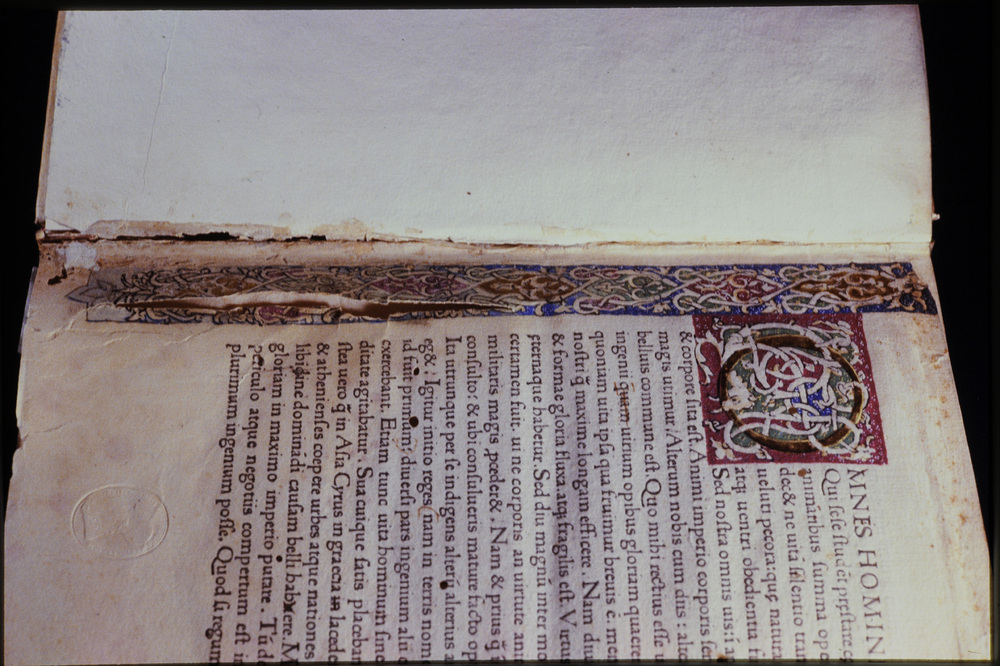 OMNES HOMIN
Qui sese studēt prestare c
animātibus summa ope
dec& ne uitā silentio tran
ueluti pecora: quę natura
atq; uentri obedientia f
Sed nostra omnis uis i a
& corpore sita est. Animi imperio corporis se
magis utimur. Alterum nobis cum diis: alte
belluis commune est. Quo mihi rectius esse u
ingenii quam uirium opibus gloriam quærere
quoniam uita ipsa qua fruimur breuis ē. mem
nostri q̄ maxime longam efficere. Nam diui
& formæ gloria fluxa atq; fragilis est. Virtus
eternaque habetur. Sed diu magnū inter mo
certamen fuit. ui ne corporis an uirtute ani
militaris magis ꝓceder&. Nam & prius q̄ i
consulto: & ubi consulueris mature facto op
Ita utrunque per se indigens alterū alterius a
eg&. Igitur initio reges (nam in terris nome
id fuit primum) diuersi pars ingenium alii c
exercebant. Etiam tunc uita hominum sine
ditate agitabatur. Sua cuique satis placeban
stea uero q̄ in Asia Cyrus in græcia lacede
& athenienses coepere urbes atque nationes
libidine dominādi causam belli habere. M
gloriam in maximo imperio putare. Tū d
periculo atque negotiis compertum est i
plurimum ingenium posse. Quod si regum